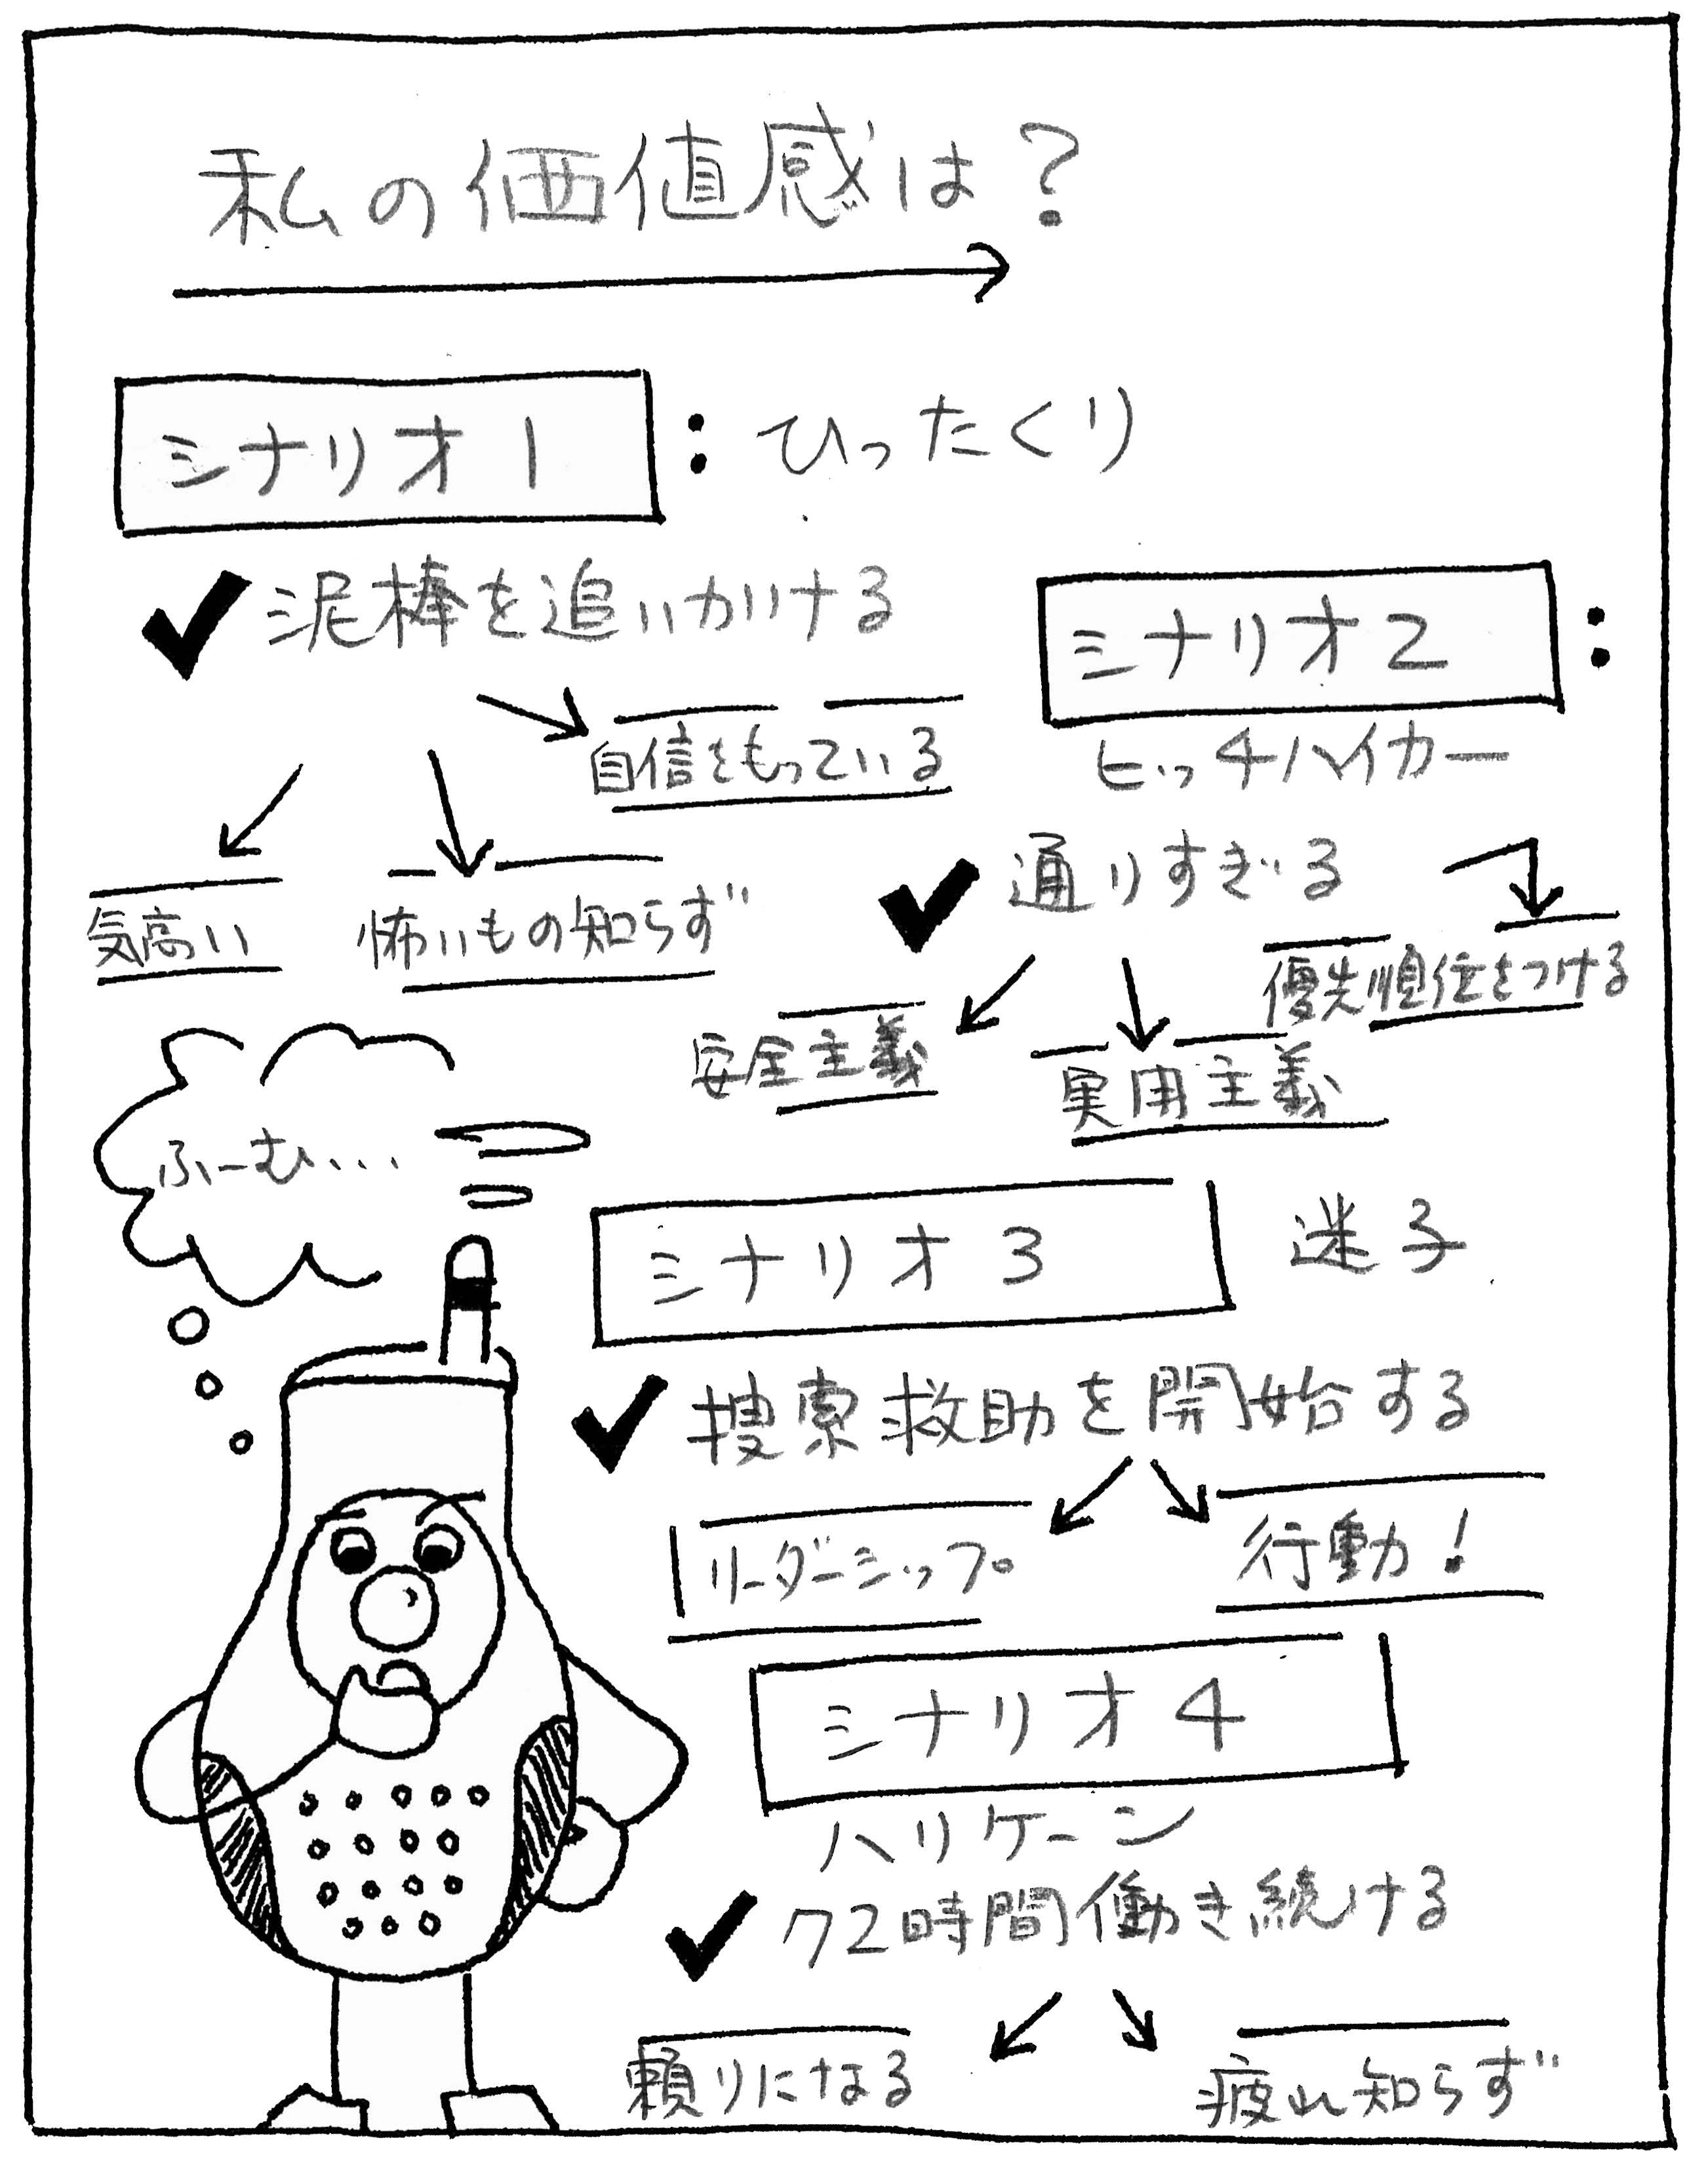 私の価値感は?
シナリオ1 : ひったくり
泥棒を追いかける
自信をもっている
気高い
怖いもの知らず
シナリオ2 :
ヒッチハイカー
通りすぎる
優先順位をつける
安全主義
実用主義
ふーむ...
シナリオ3 迷子
捜索救助を開始する
リーダーシップ
行動!
シナリオ4
ハリケーン
72時間働き続ける
頼りになる
疲れ知らず